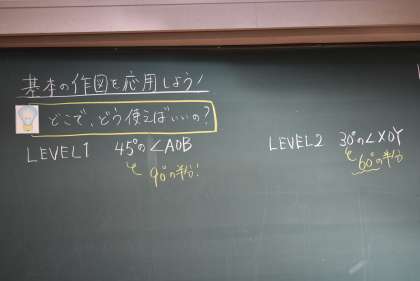 基本の作図を応用しよう!
どこで、どう使えばいいの?
LEVEL1 45°の∠AOB
90°の半分!
LEVEL2 30°の∠XOY
60°の半分